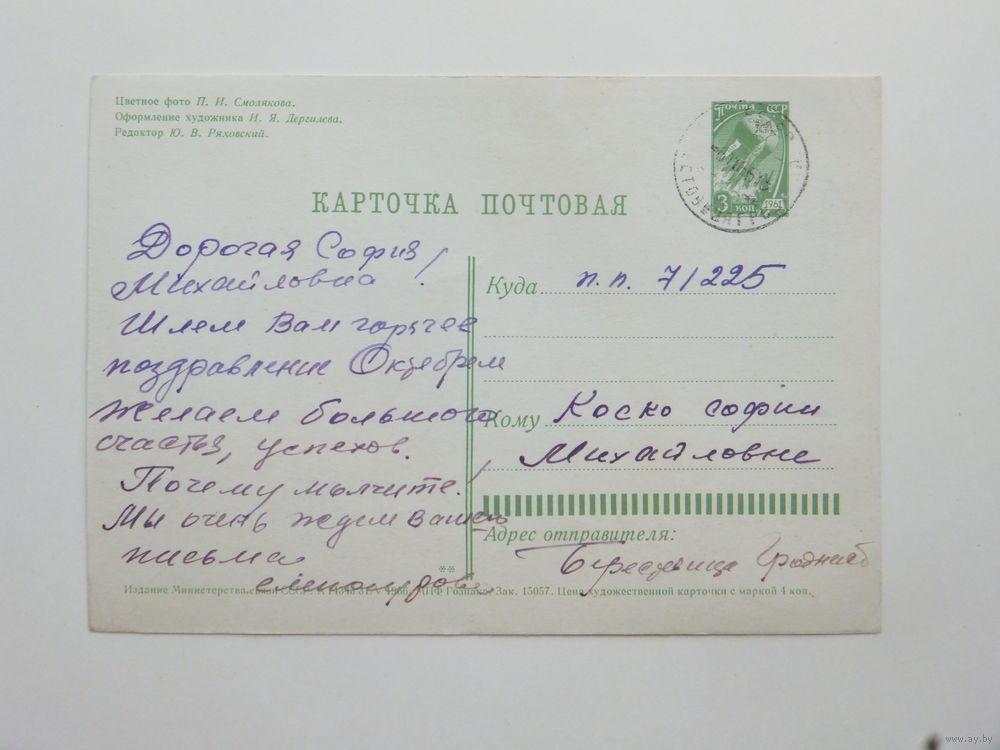 Цветное фото П. И. Смолякова.
Оформление художника И. Я. Дергилева.
Редактор Ю. В. Ряховский.
Почта СССР
3 коп
1961
КАРТОЧКА ПОЧТОВАЯ
Дорогая София
Михайловна!
Шлем Вам горячее
поздравление Октябрем
Желаем большого
счастья, успехов.
Почему молчите!
Мы очень ждем Вашего
письма
Куда п.п. 71225
Кому Коско Софии
Михайловне
Адрес отправителя:
Берестовица Гроднен
**
Издание Министерства связи СССР. 1966. МПФ Гознака. Зак. 15057. Цена художественной карточки с маркой 4 коп.
www.ay.by